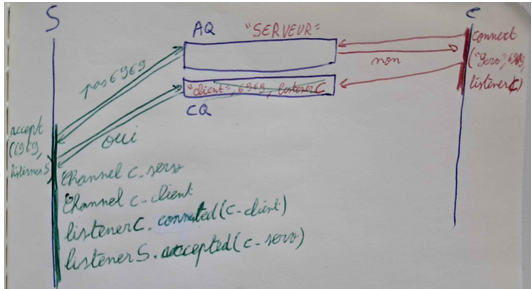 S
AQ "SERVEUR"
C
connect
("Serv", 6969,
listenerC)
non
pas 6969
"client", 6969, listenerC
CQ
accept
(6969,
listenerS)
oui
Channel c-serv
Channel c-client
listenerC.connected(c-client)
listenerS.accepted(c-serv)